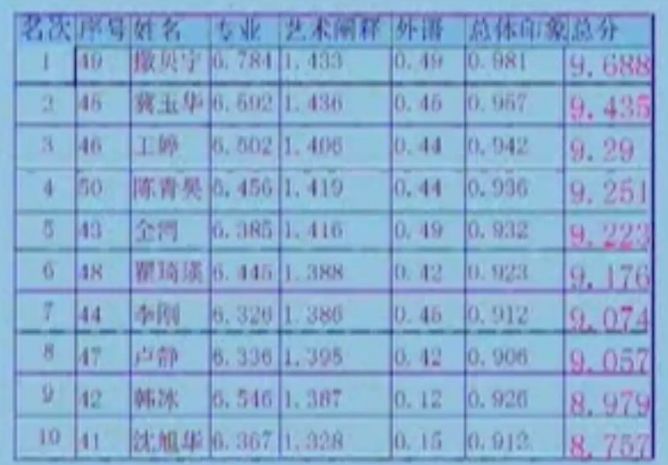 名次 序号 姓名 专业 艺术阐释 外语 总体印象 总分
1 49 撒贝宁 6.784 1.433 0.49 0.981 9.688
2 45 冀玉华 6.592 1.436 0.45 0.957 9.435
3 46 王婷 6.502 1.406 0.44 0.942 9.29
4 50 6.456 1.419 0.44 0.936 9.251
5 43 6.385 1.416 0.49 0.932 9.223
6 48 6.445 1.388 0.42 0.923 9.176
7 44 李刚 6.326 1.386 0.45 0.912 9.074
8 47 卢静 6.336 1.395 0.42 0.906 9.057
9 42 韩冰 6.546 1.387 0.12 0.926 8.979
10 41 沈旭华 6.367 1.328 0.15 0.912 8.757